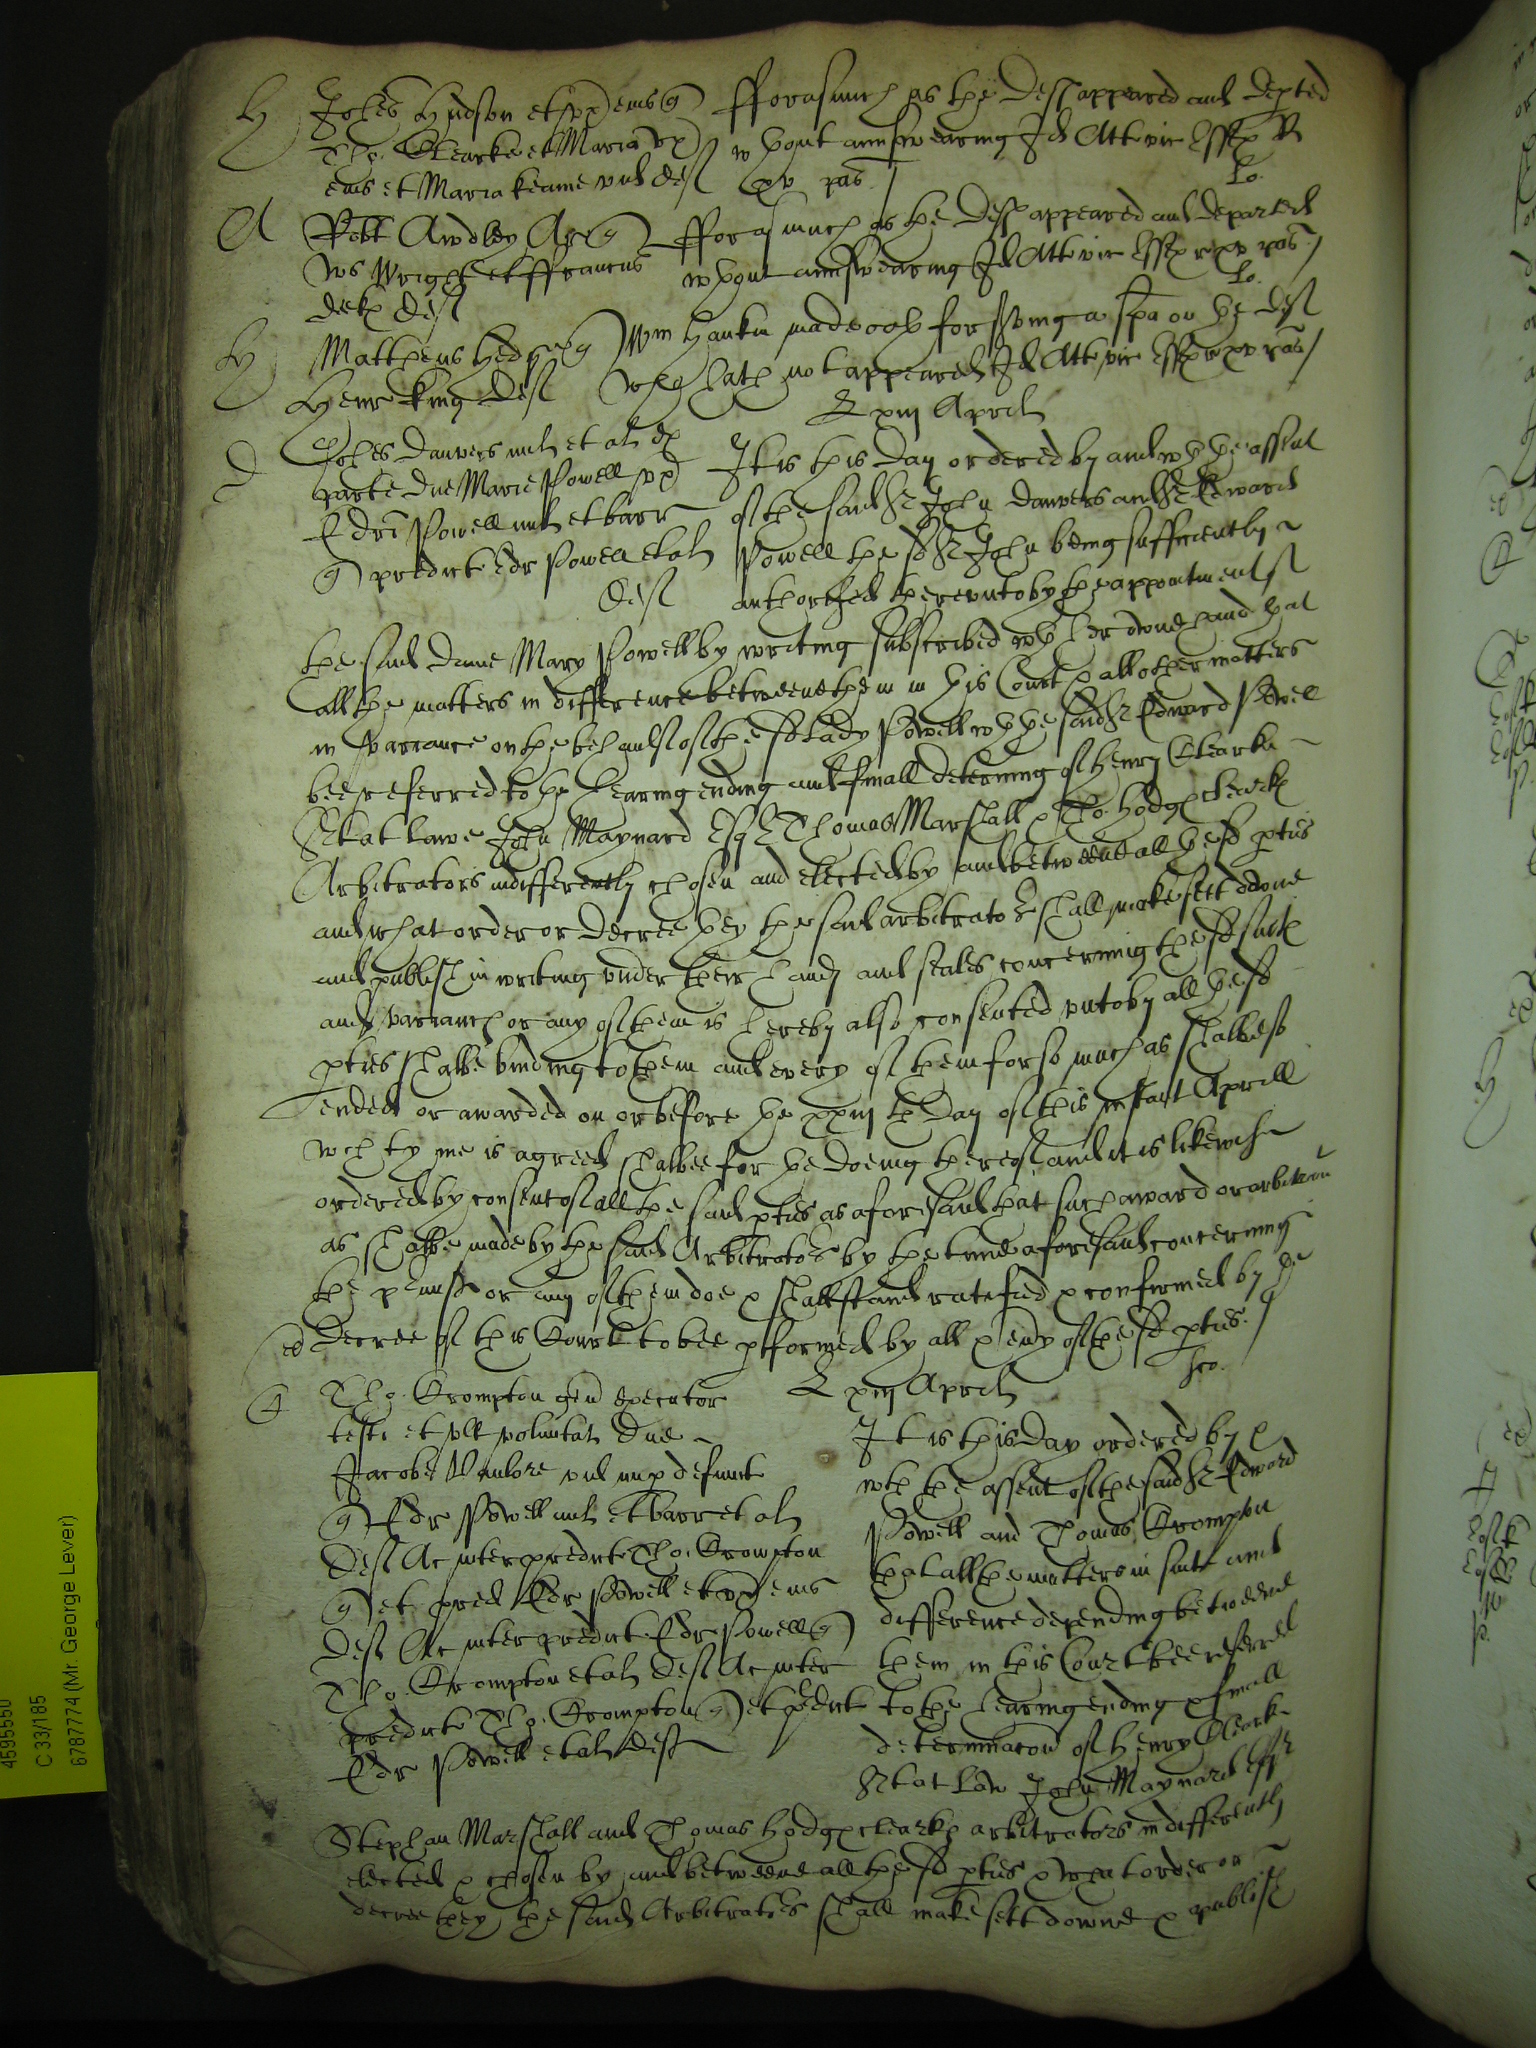 H Johes Hudson et ux eius q fforasmuch as the Deft appeared and depted
Tho. Clearke et Maria ux wthout aunswearing Id Att vic Essex R
eius et Maria Keame vid def xv pas
Lo.
A Robt Awdley Ar q fforasmuch as the Deft appeared and departed
Ws Wright et ffrancus wthout aunswearing Id Att vic Essex R xv pas
Lo.
deck def
H Mattheus Hedg q Wm Hankin made oath for serving a spa on the deft
Henr King def who hath not appeared Id Att vic Essex R xv pas
E xiij April
D Johes Danvers mil et al ex
parte Dne Marie Powell ux It is this Day ordered by and wth the assent
Edri Powell mil et barr of the said Sr John Danvers and Sr Edward
q predict Edr Powell et al Powell the sd Sr John being sufficiently
def authorized thereunto by the appointment of
the said Dame Mary Powell by writing subscribed wth her owne hand that
all the matters in difference betweene them in this Court & all other matters
in variance on the behaulf of the sd Lady Powell wth the said Sr Edward Powell
bee referred to the hearing ending and finall determing of Henry Clearke
Srt at Lawe John Maynard Esqr Thomas Marshall & Tho. Hodges Clearkes
Arbitrators indifferently chosen and elected by and betweene all the sd pties
and what order or Decree they the said arbitrators shall make sett downe
and publish in writing under their hands and seales concerning the sd suites
and variances or any of them is hereby also consented unto by all the sd
pties shalbe binding to them and every of them for so much as shalbe so
ended or awarded on or before the xxiij th Day of this instant Aprill
wch tyme is agreed shalbee for the doeing thereof and it is likewise
ordered by consent of all the said pties as aforesaid that such award or arbitramt
as shalbe made by the said Arbitrators by the time aforesaid concerning
the pmisses or any of them doe & shall stand ratified & confirmed by the
Decree of this Court to bee pformed by all & evy of the sd pties.
E xiij April
C Tho. Crompton gen executor
testi et ult voluntat Dne It is this Day ordered by &
Jacobe Vanlore vid nup defunct wth the assent of the said Sr Edward
q Edr Powell mil et barr et al Powell and Thomas Crompton
Def Ac inter predict Tho. Crompton that all the matters in suite and
q et pred Edr Powell et ux eius difference depending betweene
Def Ac inter predict Edr Powell q them in this Court bee referred
Tho. Crompton et al Def Ac inter to the hearing ending & finall
predict Tho. Crompton q et predict determinacon of Henry Clearke
Edr Powell et al Def Srt at Law John Maynard Esqr
Stephan Marshall and Thomas Hodges Clearkes arbitrators indifferently
elected & chosen by and betweene all the sd pties & what order or
decree they the said Arbitrators shall make sett downe & publish
4595550
C 33/185
67877774 (Mr. George Lever)